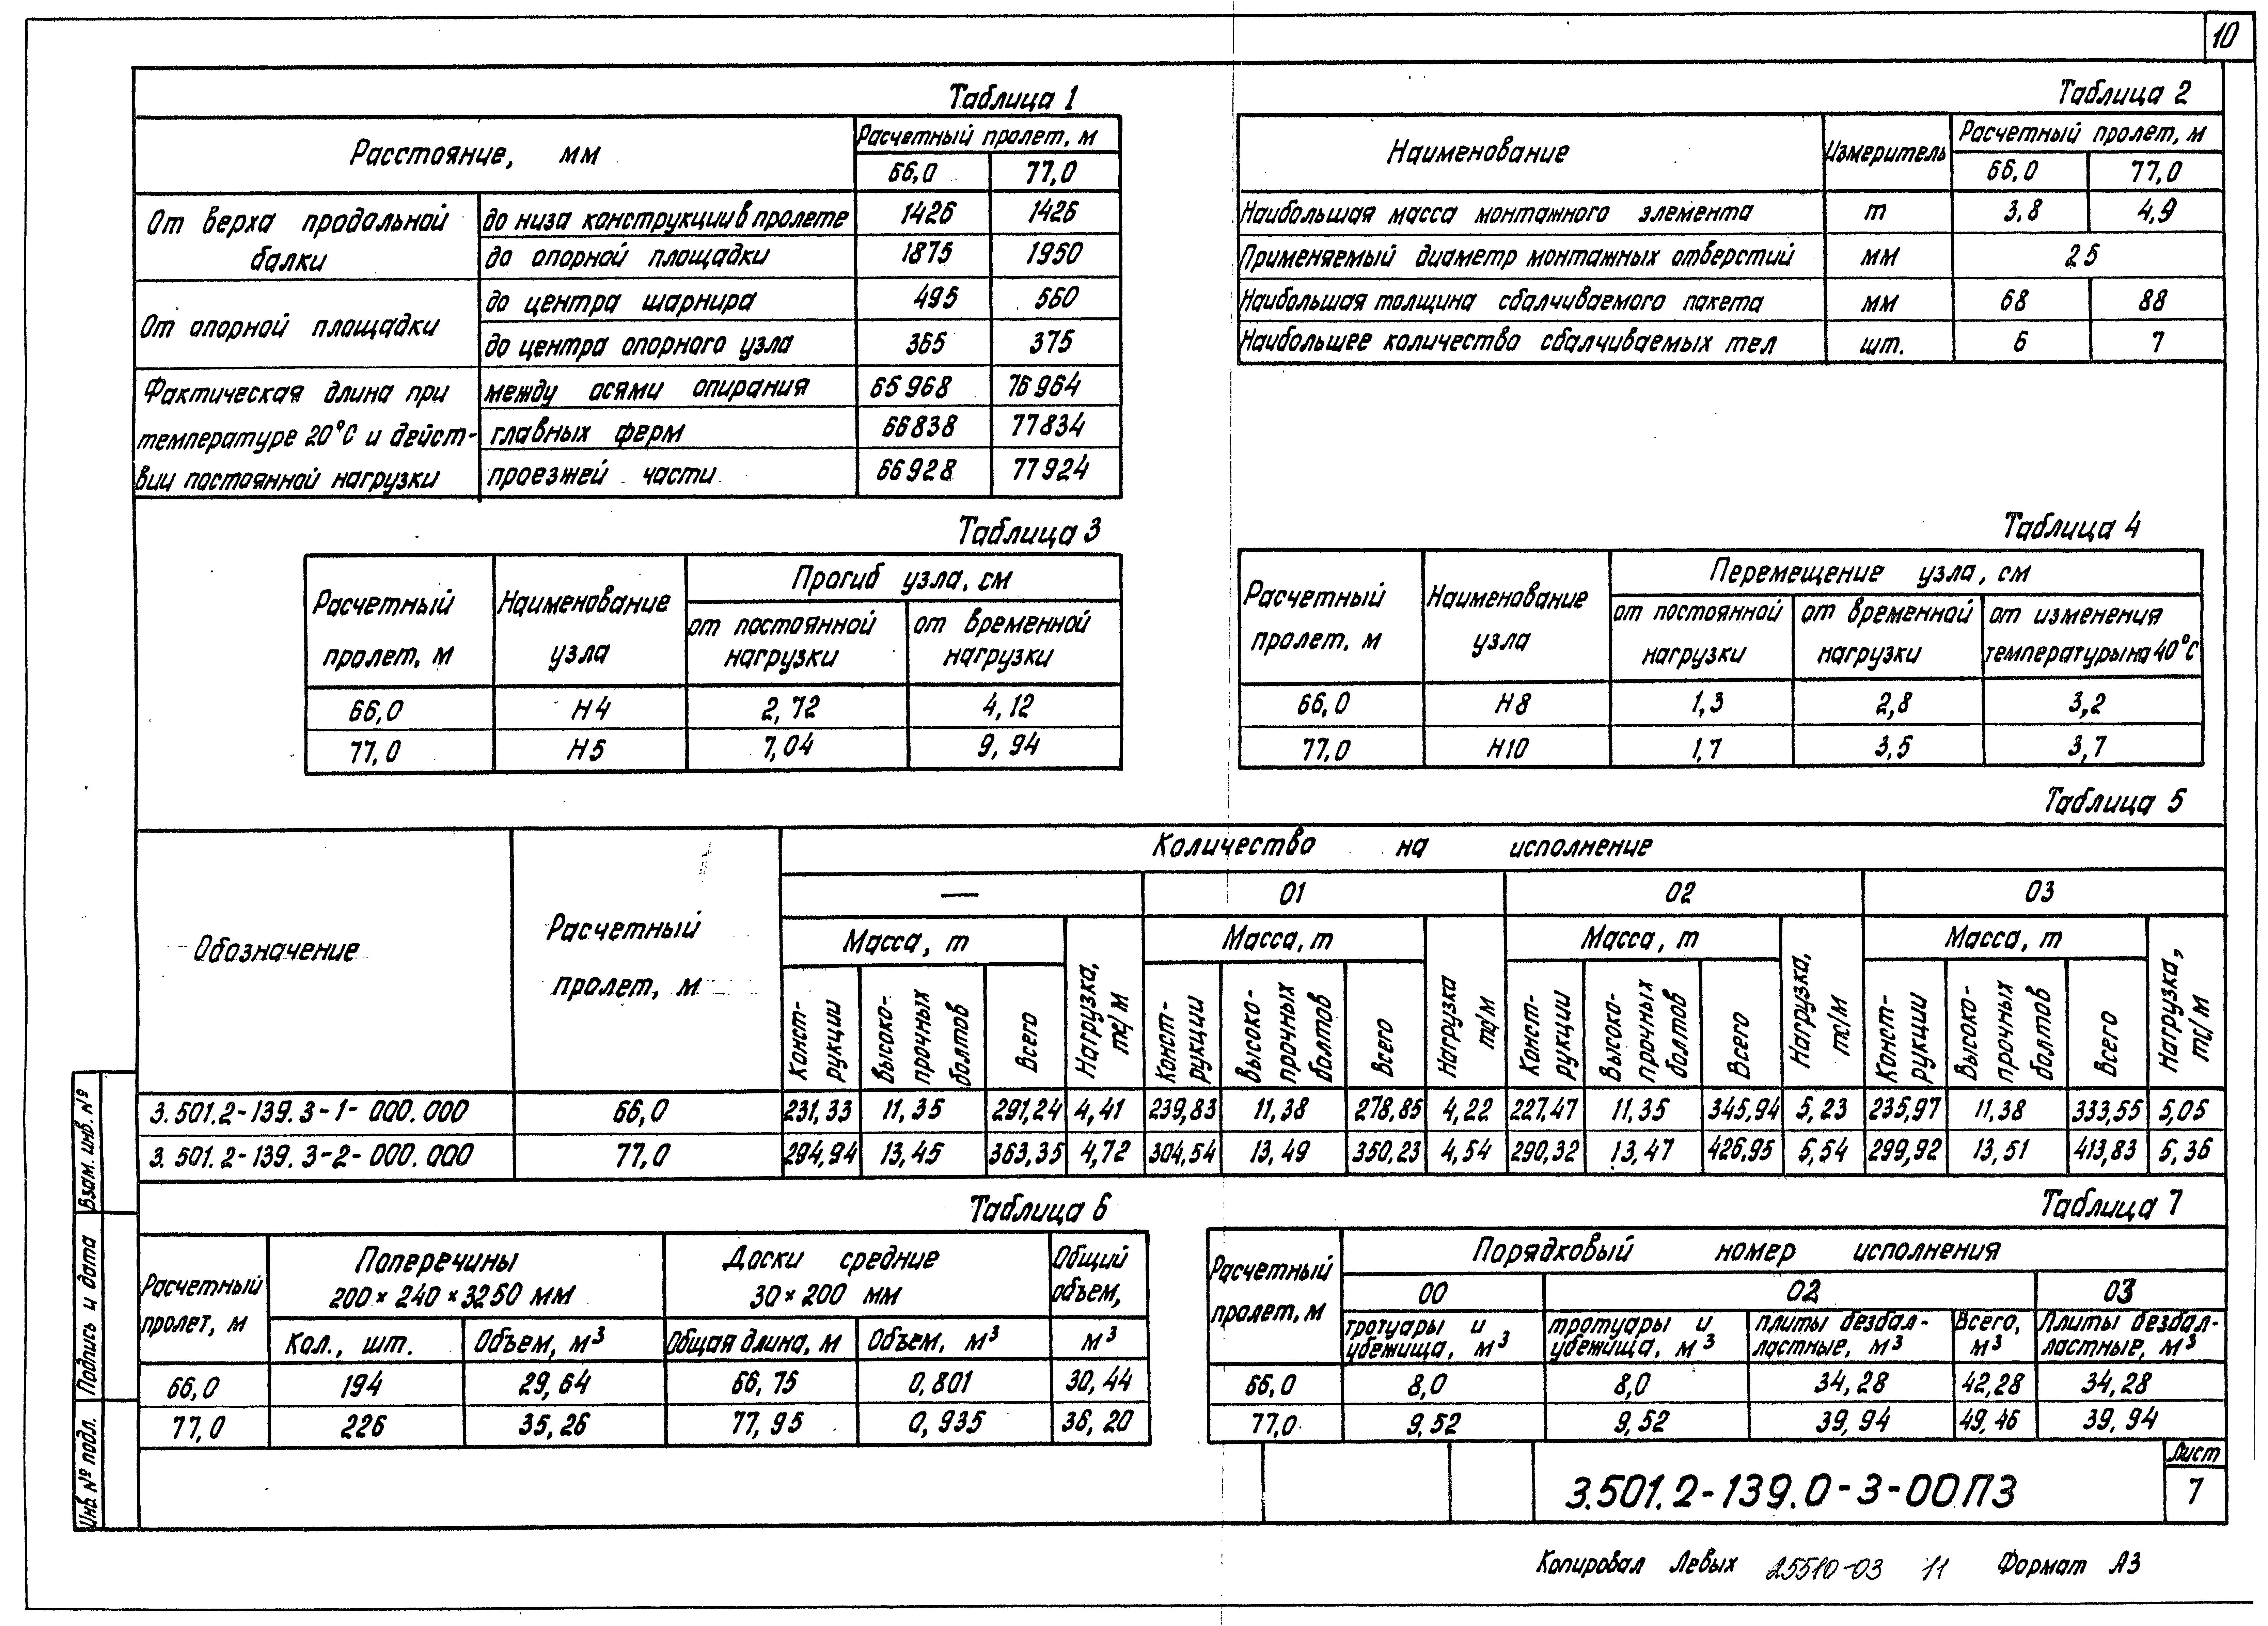 10
Таблица 1
Расстояние, мм
Расчетный пролет, м
66,0 77,0
От верха продольной балки
до низа конструкции в пролете 1426 1426
до опорной площадки 1875 1950
От опорной площадки
до центра шарнира 495 560
до центра опорного узла 365 375
Фактическая длина при температуре 20°С и дейст-
вии постоянной нагрузки
между осями опирания 65968 76964
главных ферм 66838 77834
проезжей части 66928 77924
Таблица 2
Наименование Измеритель Расчетный пролет, м
66,0 77,0
Наибольшая масса монтажного элемента т 3,8 4,9
Применяемый диаметр монтажных отверстий мм 25
Наибольшая толщина сбалчиваемого пакета мм 68 88
Наибольшее количество сбалчиваемых тел шт. 6 7
Таблица 3
Расчетный пролет, м
Наименование узла
Прогиб узла, см
от постоянной нагрузки
от временной нагрузки
66,0 Н4 2,72 4,12
77,0 Н5 7,04 9,94
Таблица 4
Расчетный пролет, м
Наименование узла
Перемещение узла, см
от постоянной нагрузки
от временной нагрузки
от изменения температуры на 40°С
66,0 Н8 1,3 2,8 3,2
77,0 Н10 1,7 3,5 3,7
Таблица 5
Обозначение
Расчетный пролет, м
Количество на исполнение
— 01 02 03
Масса, т Масса, т Масса, т Масса, т
Конст-рукции Высоко-прочных болтов Всего Нагрузка, тс/м
Конст-рукции Высоко-прочных болтов Всего Нагрузка тс/м
Конст-рукции Высоко-прочных болтов Всего Нагрузка, тс/м
Конст-рукции Высоко-прочных болтов Всего Нагрузка, тс/м
3.501.2-139.3-1-000.000 66,0 231,33 11,35 291,24 4,41 239,83 11,38 278,85 4,22 227,47 11,35 345,94 5,23 235,97 11,38 333,55 5,05
3.501.2-139.3-2-000.000 77,0 294,94 13,45 363,35 4,72 304,54 13,49 350,23 4,54 290,32 13,47 426,95 5,54 299,92 13,51 413,83 5,36
Таблица 6
Расчетный пролет, м
Поперечины
200×240×3250 мм
Доски средние
30×200 мм
Общий объем, м³
Кол., шт. Объем, м³ Общая длина, м Объем, м³
66,0 194 29,64 66,75 0,801 30,44
77,0 226 35,26 77,95 0,935 36,20
Таблица 7
Расчетный пролет, м
Порядковый номер исполнения
00 02 03
тротуары и убежища, м³
тротуары и убежища, м³
плиты безбал-ластные, м³
Всего, м³
Плиты безбал-ластные, м³
66,0 8,0 8,0 34,28 42,28 34,28
77,0 9,52 9,52 39,94 49,46 39,94
Взам. инв. №
Подпись и дата
Инв. № подл.
3.501.2-139.0-3-00ПЗ
Лист
7
Копировал Левых 25510-03 11 Формат А3